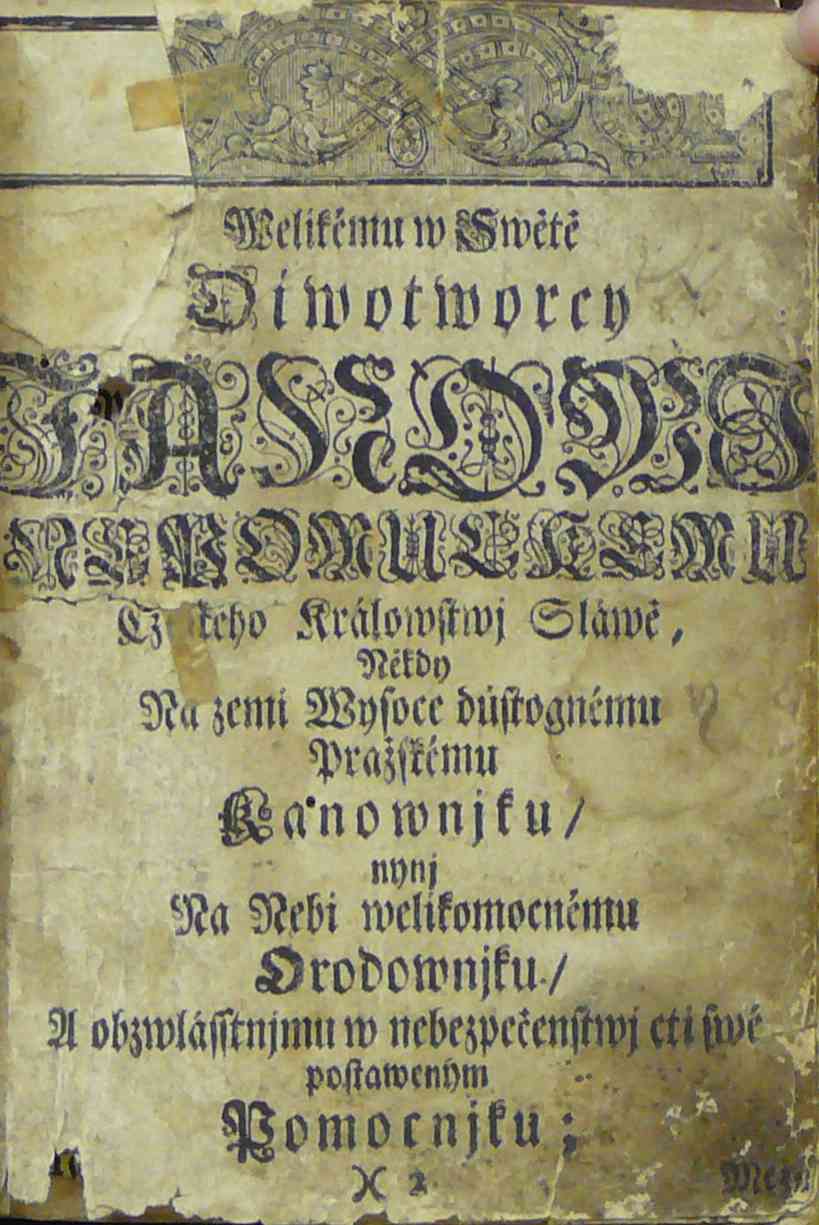 Welikému w Swětě
Diwotworcy
JANOWJ
NEPOMUCKEMU
Králowstwj Sláwě,
Někdy
Na zemi Wysoce důstognému
Pražskému
Kanownjku/
nynj
Na Nebi welikomocnému
Orodownjku/
A obzwlásstnjmu w nebezpečenstwj cti swé
postaweným
Pomocnjku;
)( 2